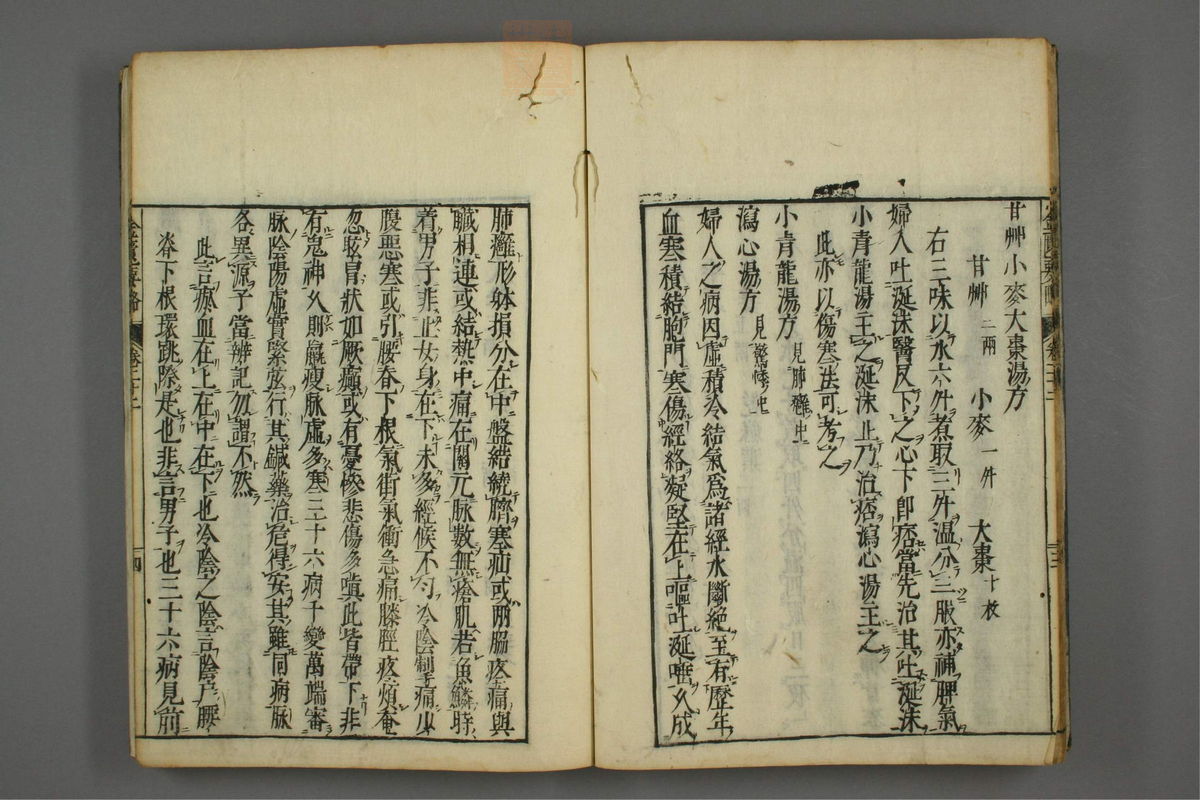 甘艸小麥大棗湯方
甘艸二兩 小麥一升 大棗十枚
右三味以水六升煮取三升温分三服亦補脾氣
婦人吐涎沫醫反下之心下即痞當先治其吐涎沫
小青龍湯主之涎沫止乃治痞瀉心湯主之
此亦以傷寒法可考之
小青龍湯方見肺癰中
瀉心湯方見驚悸中
婦人之病因虛積冷結氣爲諸經水斷絶至有歷年
血寒積結胞門寒傷經絡凝堅在上嘔吐涎唾久成
肺癰形躰損分在中盤結繞臍寒疝或兩脇疼痛與
臟相連或結熱中痛在關元脉數無瘡肌若魚鱗時
着男子非止女身在下未多經候不勻冷陰掣痛少
腹惡寒或引腰脊下根氣街氣衝急痛膝脛疼煩奄
忽眩冒狀如厥癲或有憂慘悲傷多嗔此皆帶下非
有鬼神久則羸瘦脉虛多寒三十六病千變萬端審
脉陰陽虛實緊弦行其鍼藥治危得安其雖同病脉
各異源子當辨記勿謂不然
此言瘀血在上在中在下也冷陰之陰言陰戸腰
脊下根環跳際是也非言男子也三十六病見前
金匱要略 卷二十二 四